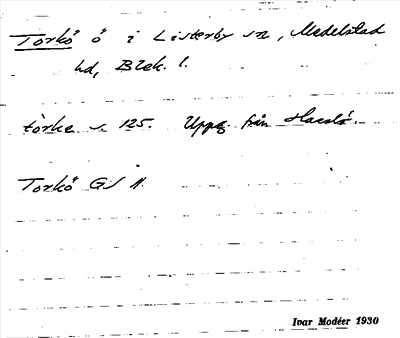 Torkö ö i Listerby sn, Medelstad
hd, Blek. l.
torke s. 125. Uppg. från Hasslö.
Torkö GS
Ivar Modéer 1930